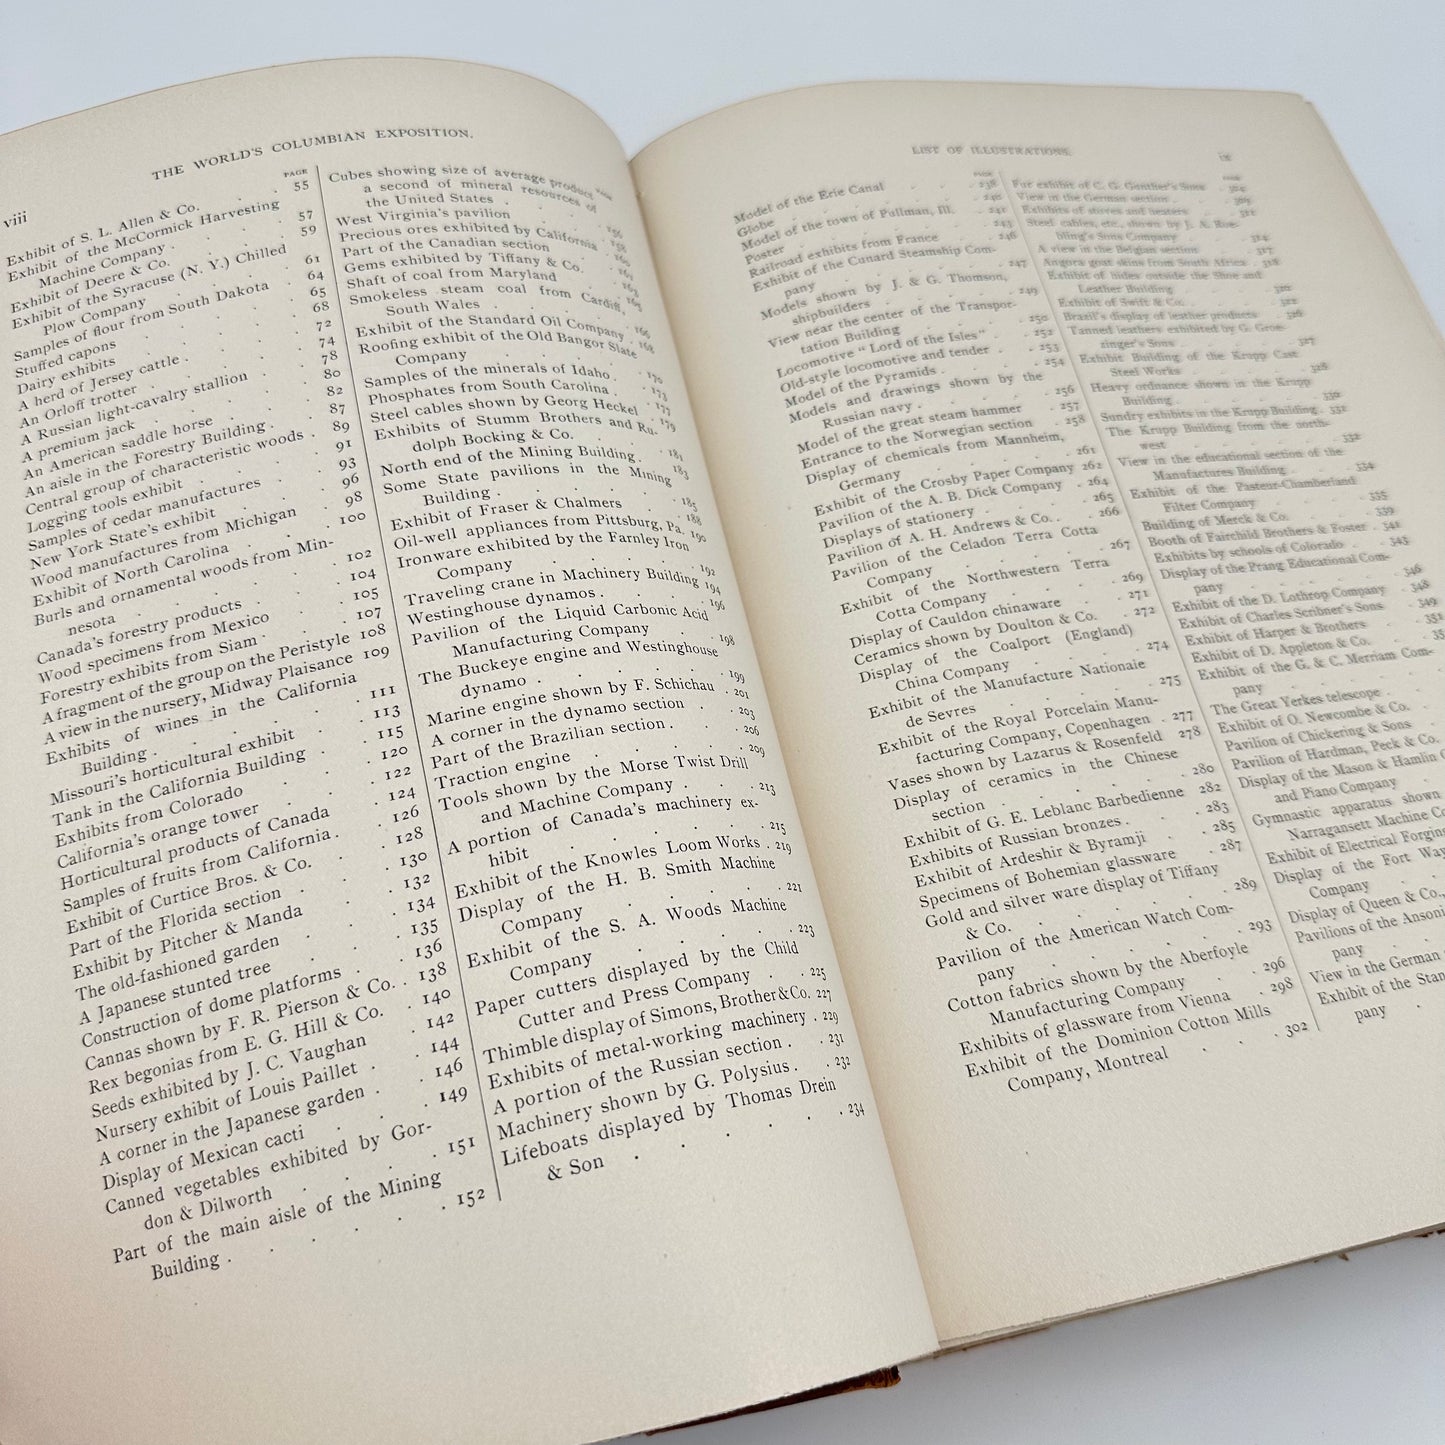 viii
THE WORLD'S COLUMBIAN EXPOSITION.
PAGE
Exhibit of S. L. Allen & Co. . . 55
Exhibit of the McCormick Harvesting
Machine Company . . . . 57
Exhibit of Deere & Co. . . . 59
Exhibit of the Syracuse (N. Y.) Chilled
Plow Company . . . . 61
Samples of flour from South Dakota . 64
Stuffed capons . . . . 65
Dairy exhibits . . . . 68
A herd of Jersey cattle . . . 72
An Orloff trotter . . . . 74
A Russian light-cavalry stallion . . 78
A premium jack . . . . 80
An American saddle horse . . . 82
An aisle in the Forestry Building . . 87
Central group of characteristic woods . 89
Logging tools exhibit . . . 91
Samples of cedar manufactures . . 93
New York State's exhibit . . . 96
Wood manufactures from Michigan . 98
Exhibit of North Carolina . . . 100
Burls and ornamental woods from Min-
nesota . . . . . 102
Canada's forestry products . . . 104
Wood specimens from Mexico . . 105
Forestry exhibits from Siam . . . 107
A fragment of the group on the Peristyle 108
A view in the nursery, Midway Plaisance 109
Exhibits of wines in the California
Building . . . . . 111
Missouri's horticultural exhibit . . 113
Tank in the California Building . . 115
Exhibits from Colorado . . . 120
California's orange tower . . . 122
Horticultural products of Canada . . 124
Samples of fruits from California . . 126
Exhibit of Curtice Bros. & Co. . . 128
Part of the Florida section . . . 130
Exhibit by Pitcher & Manda . . 132
The old-fashioned garden . . . 134
A Japanese stunted tree . . . 135
Construction of dome platforms . . 136
Cannas shown by F. R. Pierson & Co. . 138
Rex begonias from E. G. Hill & Co. . 140
Seeds exhibited by J. C. Vaughan . 142
Nursery exhibit of Louis Paillet . . 144
A corner in the Japanese garden . . 146
Display of Mexican cacti . . . 149
Canned vegetables exhibited by Gor-
don & Dilworth . . . . 151
Part of the main aisle of the Mining
Building . . . . . 152
PAGE
Cubes showing size of average product
a second of mineral resources of
the United States . . . . 156
West Virginia's pavilion . . . 158
Precious ores exhibited by California . 160
Part of the Canadian section
Gems exhibited by Tiffany & Co. . 163
Shaft of coal from Maryland
Smokeless steam coal from Cardiff,
South Wales . . . . 166
Exhibit of the Standard Oil Company . 168
Roofing exhibit of the Old Bangor Slate
Company . . . . . 170
Samples of the minerals of Idaho . . 173
Phosphates from South Carolina . . 177
Steel cables shown by Georg Heckel . 179
Exhibits of Stumm Brothers and Ru-
dolph Bocking & Co. . . . 181
North end of the Mining Building . . 183
Some State pavilions in the Mining
Building . . . . . 185
Exhibit of Fraser & Chalmers . . 188
Oil-well appliances from Pittsburg, Pa. . 190
Ironware exhibited by the Farnley Iron
Company . . . . . 192
Traveling crane in Machinery Building 194
Westinghouse dynamos . . . 196
Pavilion of the Liquid Carbonic Acid
Manufacturing Company . . . 198
The Buckeye engine and Westinghouse
dynamo . . . . . 199
Marine engine shown by F. Schichau . 201
A corner in the dynamo section . . 203
Part of the Brazilian section . . . 206
Traction engine . . . . 209
Tools shown by the Morse Twist Drill
and Machine Company . . . 213
A portion of Canada's machinery ex-
hibit . . . . . 215
Exhibit of the Knowles Loom Works . 219
Display of the H. B. Smith Machine
Company . . . . . 221
Exhibit of the S. A. Woods Machine
Company . . . . . 223
Paper cutters displayed by the Child
Cutter and Press Company . . 225
Thimble display of Simons, Brother & Co. 227
Exhibits of metal-working machinery . 229
A portion of the Russian section . . 231
Machinery shown by G. Polysius . . 232
Lifeboats displayed by Thomas Drein
& Son . . . . . 234
LIST OF ILLUSTRATIONS.
ix
PAGE
Model of the Erie Canal . . . 238
Globe . . . . . 240
Model of the town of Pullman, Ill. . 241
Poster . . . . . 243
Railroad exhibits from France . . 246
Exhibit of the Cunard Steamship Com-
pany . . . . . 247
Models shown by J. & G. Thomson,
shipbuilders . . . . 249
View near the center of the Transpor-
tation Building . . . . 250
Locomotive "Lord of the Isles" . . 252
Old-style locomotive and tender . . 253
Model of the Pyramids . . . 254
Models and drawings shown by the
Russian navy . . . . 256
Model of the great steam hammer . 257
Entrance to the Norwegian section . 258
Display of chemicals from Mannheim,
Germany . . . . . 261
Exhibit of the Crosby Paper Company 262
Pavilion of the A. B. Dick Company . 264
Displays of stationery . . . 265
Pavilion of A. H. Andrews & Co. . . 266
Pavilion of the Celadon Terra Cotta
Company . . . . . 267
Exhibit of the Northwestern Terra
Cotta Company . . . . 269
Display of Cauldon chinaware . . 271
Ceramics shown by Doulton & Co. . 272
Display of the Coalport (England)
China Company . . . . 274
Exhibit of the Manufacture Nationaie
de Sevres . . . . . 275
Exhibit of the Royal Porcelain Manu-
facturing Company, Copenhagen . 277
Vases shown by Lazarus & Rosenfeld 278
Display of ceramics in the Chinese
section . . . . . 280
Exhibit of G. E. Leblanc Barbedienne 282
Exhibits of Russian bronzes . . . 283
Exhibit of Ardeshir & Byramji . . 285
Specimens of Bohemian glassware . 287
Gold and silver ware display of Tiffany
& Co. . . . . . 289
Pavilion of the American Watch Com-
pany . . . . . 293
Cotton fabrics shown by the Aberfoyle
Manufacturing Company . . 296
Exhibits of glassware from Vienna . 298
Exhibit of the Dominion Cotton Mills
Company, Montreal . . . 302
PAGE
Fur exhibit of C. G. Gunther's Sons . 304
View in the German section . . .
Exhibits of stoves and heaters . .
Steel cables, etc., shown by J. A. Roe-
bling's Sons Company . . . 314
A view in the Belgian section . . 317
Angora goat skins from South Africa . 318
Exhibit of hides outside the Shoe and
Leather Building . . . 320
Exhibit of Swift & Co. . . . 322
Brazil's display of leather products . 326
Tanned leathers exhibited by G. Groe-
zinger's Sons . . . . 327
Exhibit Building of the Krupp Cast
Steel Works . . . . 328
Heavy ordnance shown in the Krupp
Building . . . . . 330
Sundry exhibits in the Krupp Building . 331
The Krupp Building from the north-
west . . . . . 332
View in the educational section of the
Manufactures Building . . . 334
Exhibit of the Pasteur-Chamberland
Filter Company . . . . 335
Building of Merck & Co. . . . 339
Booth of Fairchild Brothers & Foster . 341
Exhibits by schools of Colorado . . 343
Display of the Prang Educational Com-
pany . . . . . 346
Exhibit of the D. Lothrop Company . 348
Exhibit of Charles Scribner's Sons . 349
Exhibit of Harper & Brothers
Exhibit of D. Appleton & Co. .
Exhibit of the G. & C. Merriam Com-
pany . . . .
The Great Yerkes telescope . .
Exhibit of O. Newcombe & Co. .
Pavilion of Chickering & Sons .
Pavilion of Hardman, Peck & Co.
Display of the Mason & Hamlin
and Piano Company
Gymnastic apparatus shown
Narragansett Machine
Exhibit of Electrical Forging
Display of the Fort Way
Company . .
Display of Queen & Co.,
Pavilions of the Ansoni
pany . .
View in the German
Exhibit of the Stan
pany .